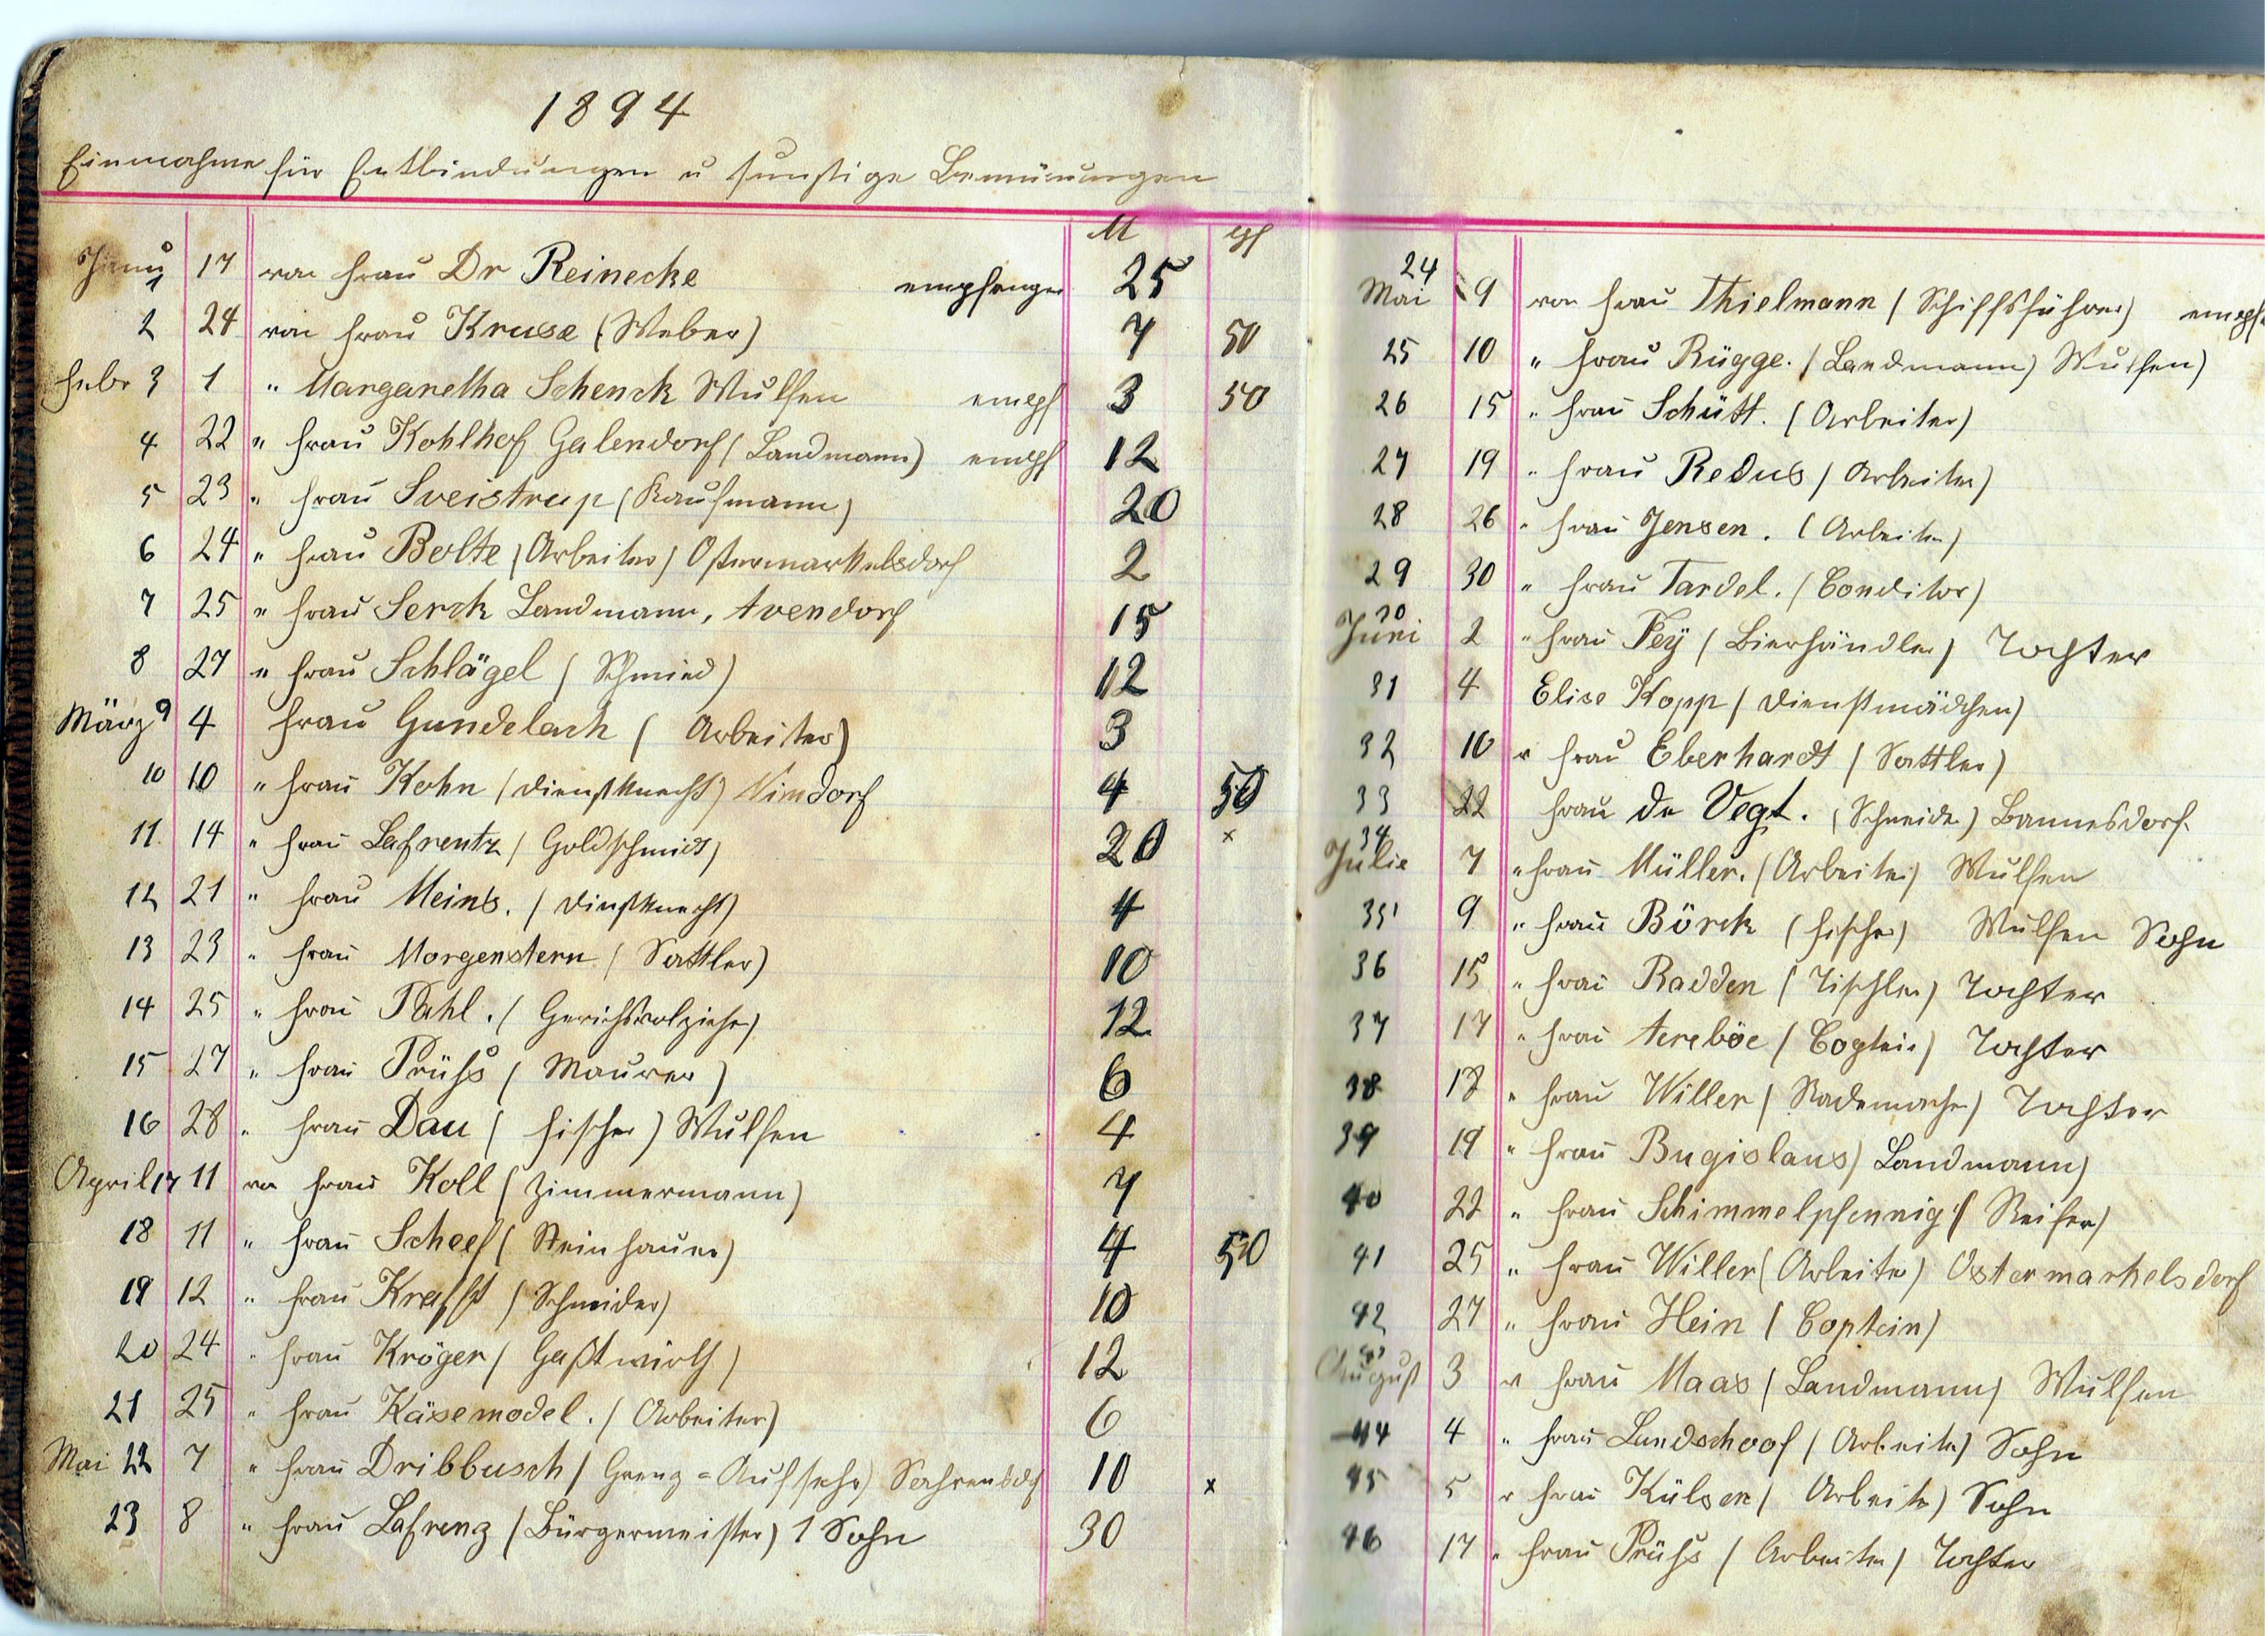 1894
Einnahme für Entbindungen u sunstige Bemüungen
M Pf
Janu 1 17 von Frau Dr Reinecke empfangen 25
2 24 von Frau Kruse (Weber) 7 50
Febr 3 1 " Margaretha Schenck Wulfen empf 3 50
4 22 " Frau Kohlhof Galendorf (Landmann) empf 12
5 23 " Frau Sveistrup (Kaufmann) 20
6 24 " Frau Bolte (Arbeiter) Ostermarkelsdorf 2
7 25 " Frau Serck Landmann, Avendorf 15
8 27 " Frau Schlägel (Schmied) 12
März 9 4 Frau Gundelach (Arbeiter) 3
10 10 " Frau Kohn (Dienstknecht) Nimdorf 4 50
11 14 " Frau Lafrentz (Goldschmidt) 20 x
12 21 " Frau Meins. (Dinstknecht) 4
13 23 " Frau Morgenstern (Sattler) 10
14 25 " Frau Pahl. (Gerichtsvolzieher) 12
15 27 " Frau Prühs (Maurer) 6
16 28 " Frau Dau (Fischer) Wulfen 4
April 17 11 von Frau Koll (Zimmermann) 7
18 11 " Frau Scheel (Steinhauer) 4 50
19 12 " Frau Krafft (Schneider) 10
20 24 " Frau Kröger (Gastwirth) 12
21 25 " Frau Käsemodel. (Arbeiter) 6
Mai 22 7 " Frau Dribbusch (Grenz=Aufseher) Sahrensdf 10 x
23 8 " Frau Lafrenz (Bürgermeister) 1 Sohn 30
24
Mai 9 von Frau Thielmann (Schiffsführer) empf
25 10 " Frau Rügge. (Landmann) Wulfen)
26 15 " Frau Schütt. (Arbeiter)
27 19 " Frau Redus (Arbeiter)
28 26 " Frau Jensen. (Arbeiter)
29 30 " Frau Tardel. (Conditor)
30
Juni 2 " Frau Feÿ (Bierhändler) Tochter
31 4 Elise Kopp (Dienstmädchen)
32 10 v Frau Eberhardt (Sattler)
33 22 Frau de Vegt. (Schneider) Bannesdorf.
34
Julie 7 " Frau Müller. (Arbeiter) Wulfen
35 9 " Frau Börck (Fischer) Wulfen Sohn
36 15 " Frau Radden (Tischler) Tochter
37 17 " Frau Aereböe (Captein) Tochter
38 18 " Frau Willer (Rademacher) Tochter
39 19 " Frau Bugislaus) Landmann)
40 22 " Frau Schimmelpfennig (Reifer)
41 25 " Frau Willer (Arbeiter) Ostermarkelsdorf
42 27 " Frau Hein (Captein)
August 3 v Frau Maas (Landmann) Wulfen
44 4 " Frau Landschoof (Arbeiter) Sohn
45 5 v Frau Külsen (Arbeiter) Sohn
46 17 " Frau Prühs (Arbeiter) Tochter